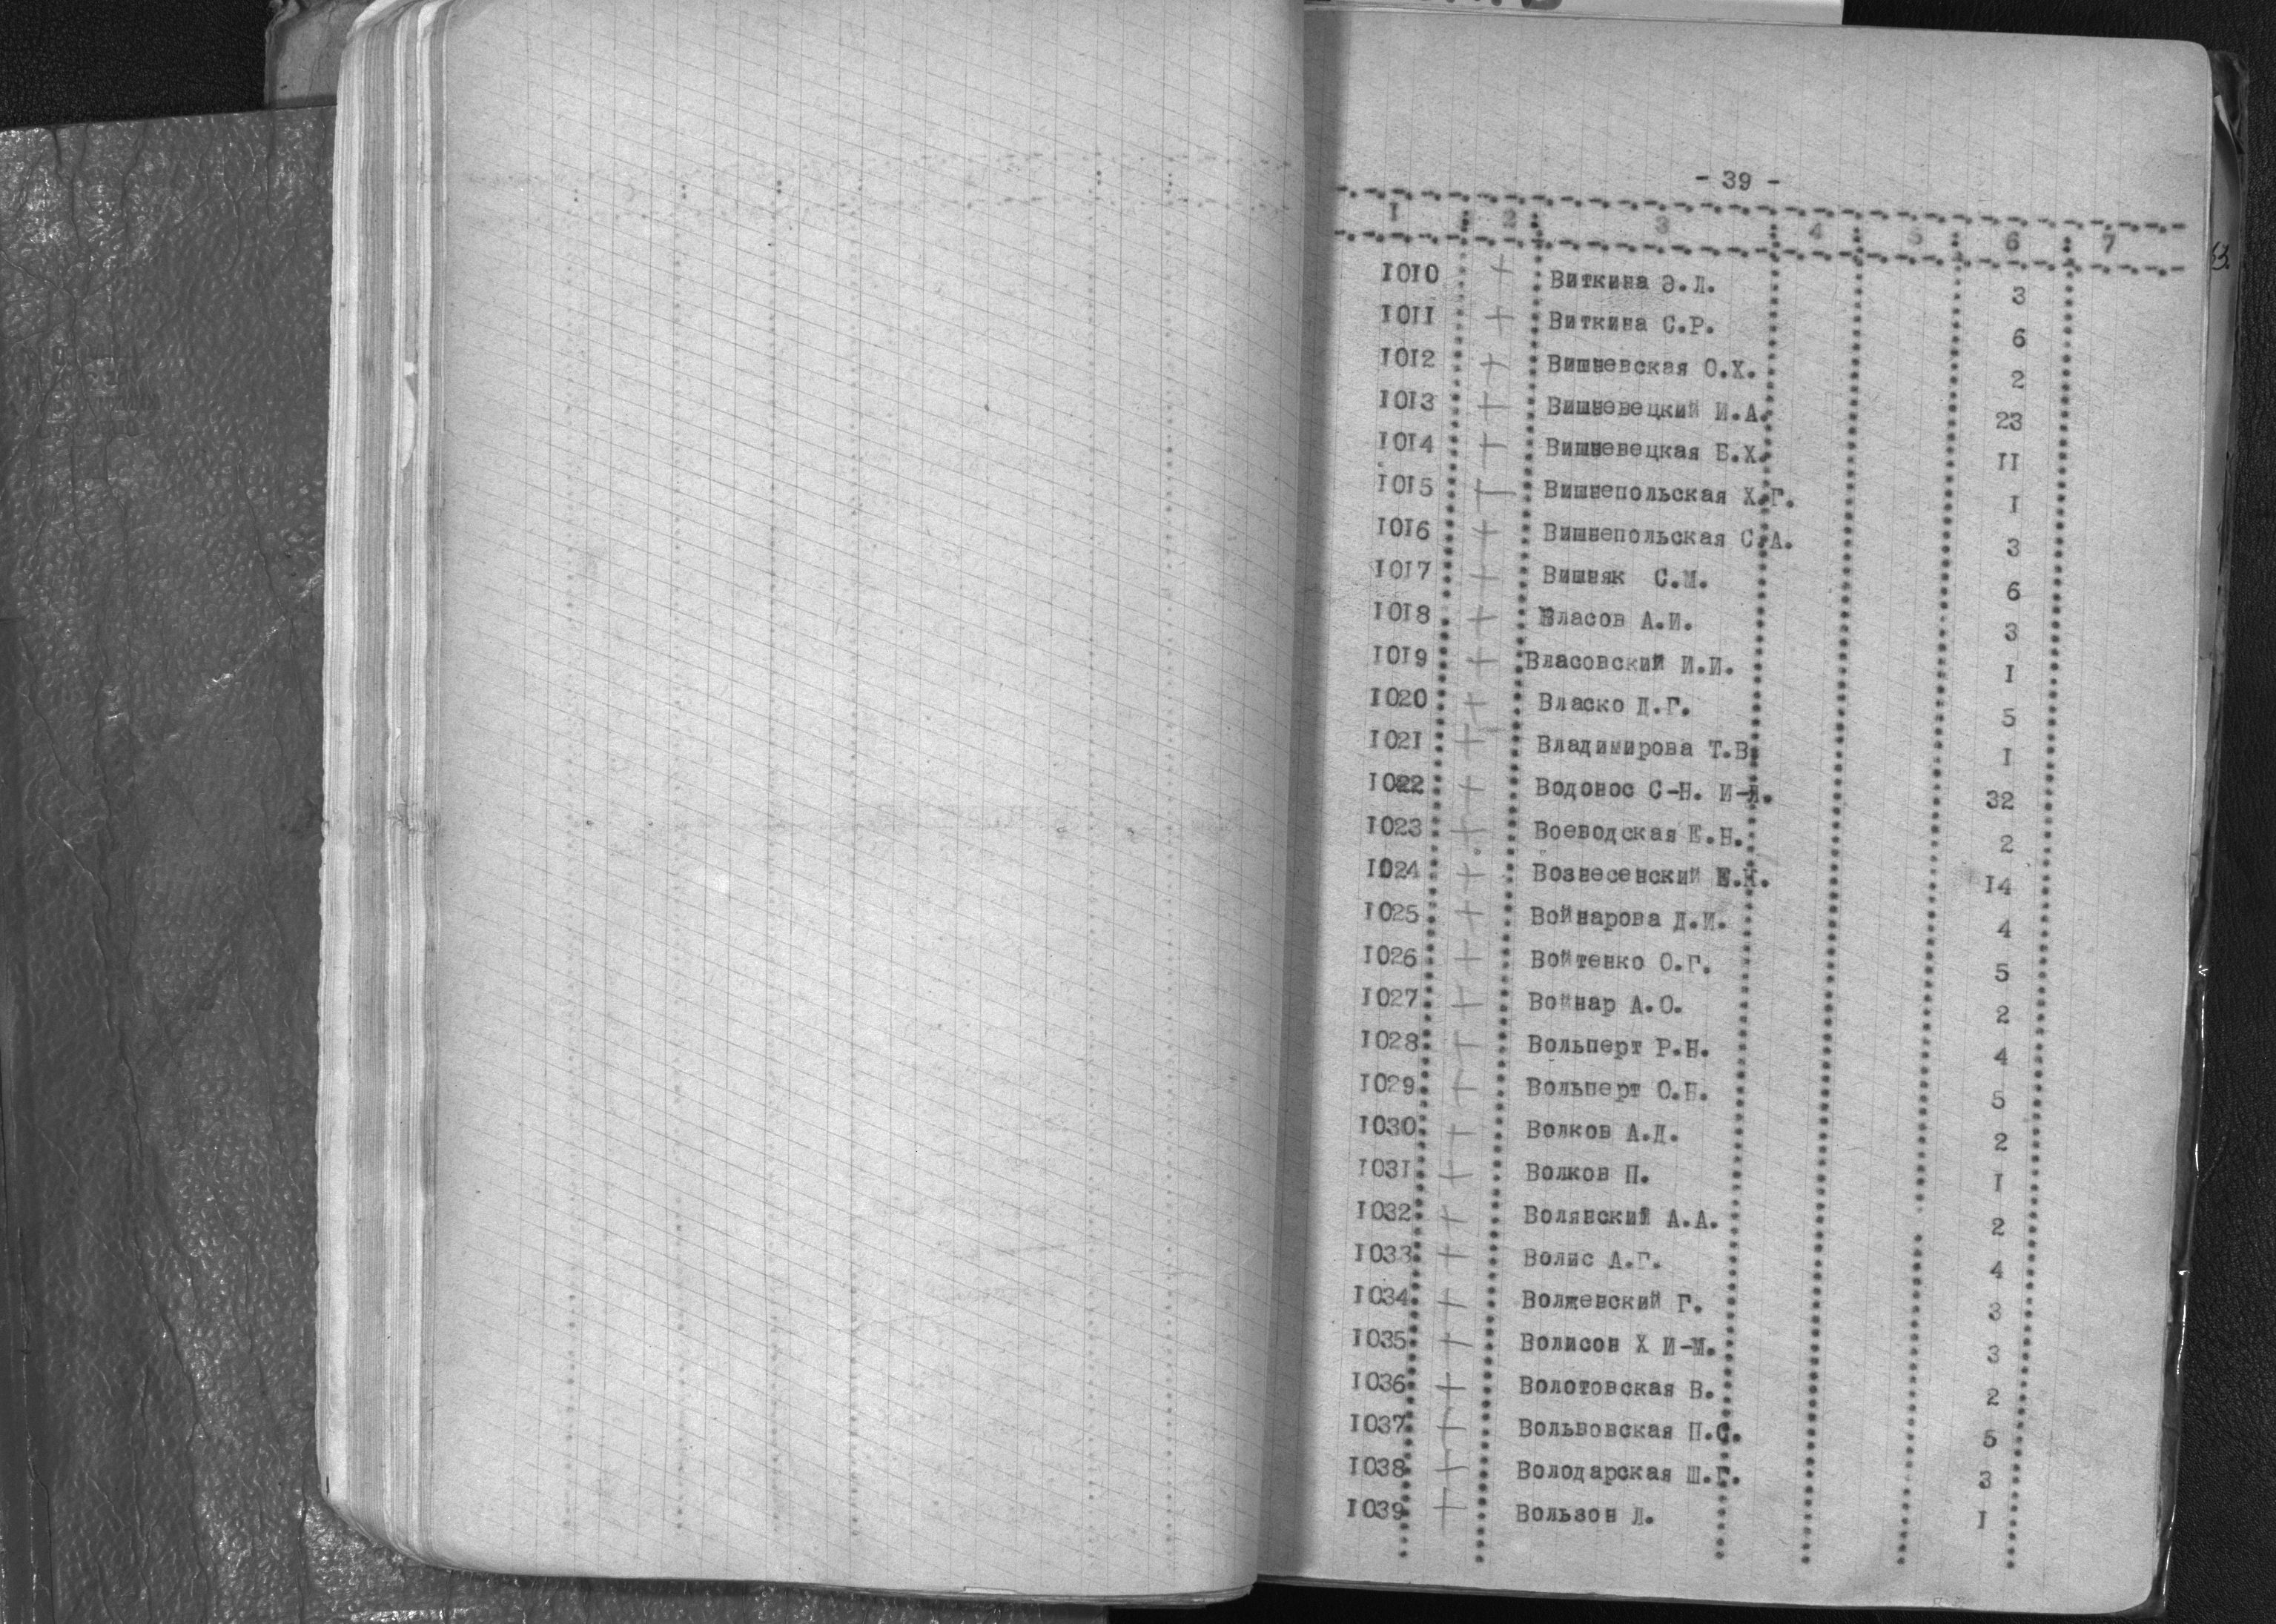 - 39 -
I 2 3 4 5 6 7
I0I0 + Виткина Э.Л. 3
I0II + Виткина С.Р. 6
I0I2 + Вишневская О.Х. 2
I0I3 + Вишневецкий И.А. 23
I0I4 + Вишневецкая Б.Х. II
I0I5 + Вишнепольская Х.Г. I
I0I6 + Вишнепольская С.А. 3
I0I7 + Вишняк С.М. 6
I0I8 + Власов А.И. 3
I0I9 + Власовский И.И. I
I020 + Власко Д.Г. 5
I02I + Владимирова Т.В. I
I022 + Водонос С-Н. 32
I023 + Воеводская Е.Н. 2
I024 + Вознесенский 14
I025 + Войнарова Д.И. 4
I026 + Войтенко О.Г. 5
I027 + Войнар А.О. 2
I028 + Вольперт Р.Н. 4
I029 + Вольперт О.Н. 5
I030 + Волков А.Д. 2
I03I + Волков П. I
I032 + Волянский А.А. 2
I033 + Волис А.Г. 4
I034 + Волженский Г. 3
I035 + Волисон Х И-М. 3
I036 + Волотовская В. 2
I037 + Вольвовская П.С. 5
I038 + Володарская Ш.Г. 3
I039 + Вользон Л. I